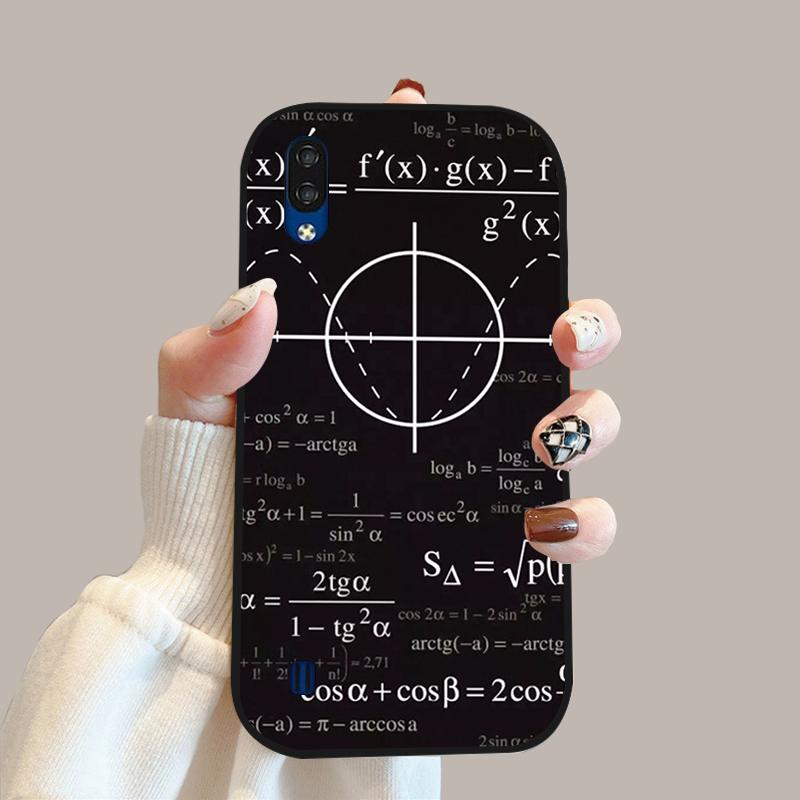 sin α cos α
logₐ b/c = logₐ b – lo
(x)/(x) ′ = f′(x)·g(x) – f/g²(x)
cos 2α = c
+ cos² α = 1
–a) = –arctga
logₐ b = log꜀ b/log꜀ a
= r logₐ b
tg²α+1 = 1/sin² α = cosec²α
sin α
os x)² = 1–sin 2x
S_Δ = √p(p
α = 2tgα/1 – tg²α
tgx =
cos 2α = 1 – 2 sin² α
arctg(–a) = –arctg
+ 1/1! + 1/2! + 1/n!) = 2,71
cosα + cosβ = 2cos
s(–a) = π – arccos a
2 sin α